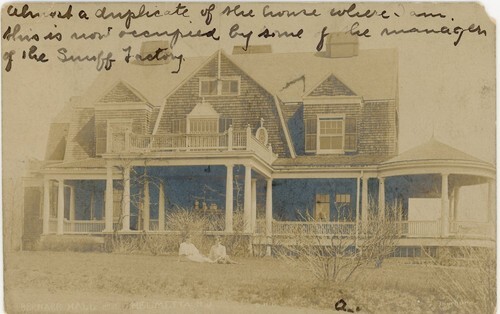 Almost a duplicate of the house where I am.
this is now occupied by some of the managers
of the Snuff Factory.
A.